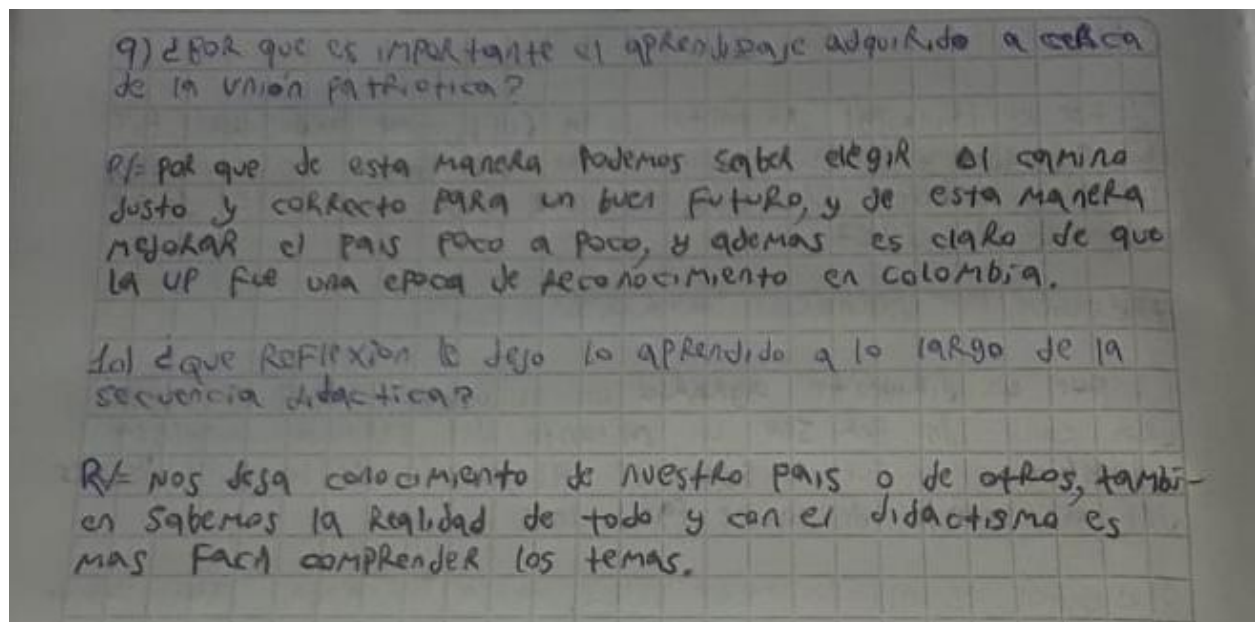 9) ¿POR que es IMPORtante el apRendizaje adquiRido a ceRca
de la Unión PatRiotica?
R/= poR que de esta maneRa Podemos sabeR elegiR el camino
Justo y coRRecto paRa un buen FutuRo, y de esta maneRa
mejoRaR el pais poco a poco, y ademas es claRo de que
La UP fue una epoca de reconocimiento en colombia.
10) ¿que ReFlexion le dejo lo apRendido a lo laRgo de la
secuencia didactica?
R/= Nos deja conocimiento de nuestRo pais o de otRos, tambi-
en sabemos la Realidad de todo y con el didactismo es
mas Facil compRendeR los temas.